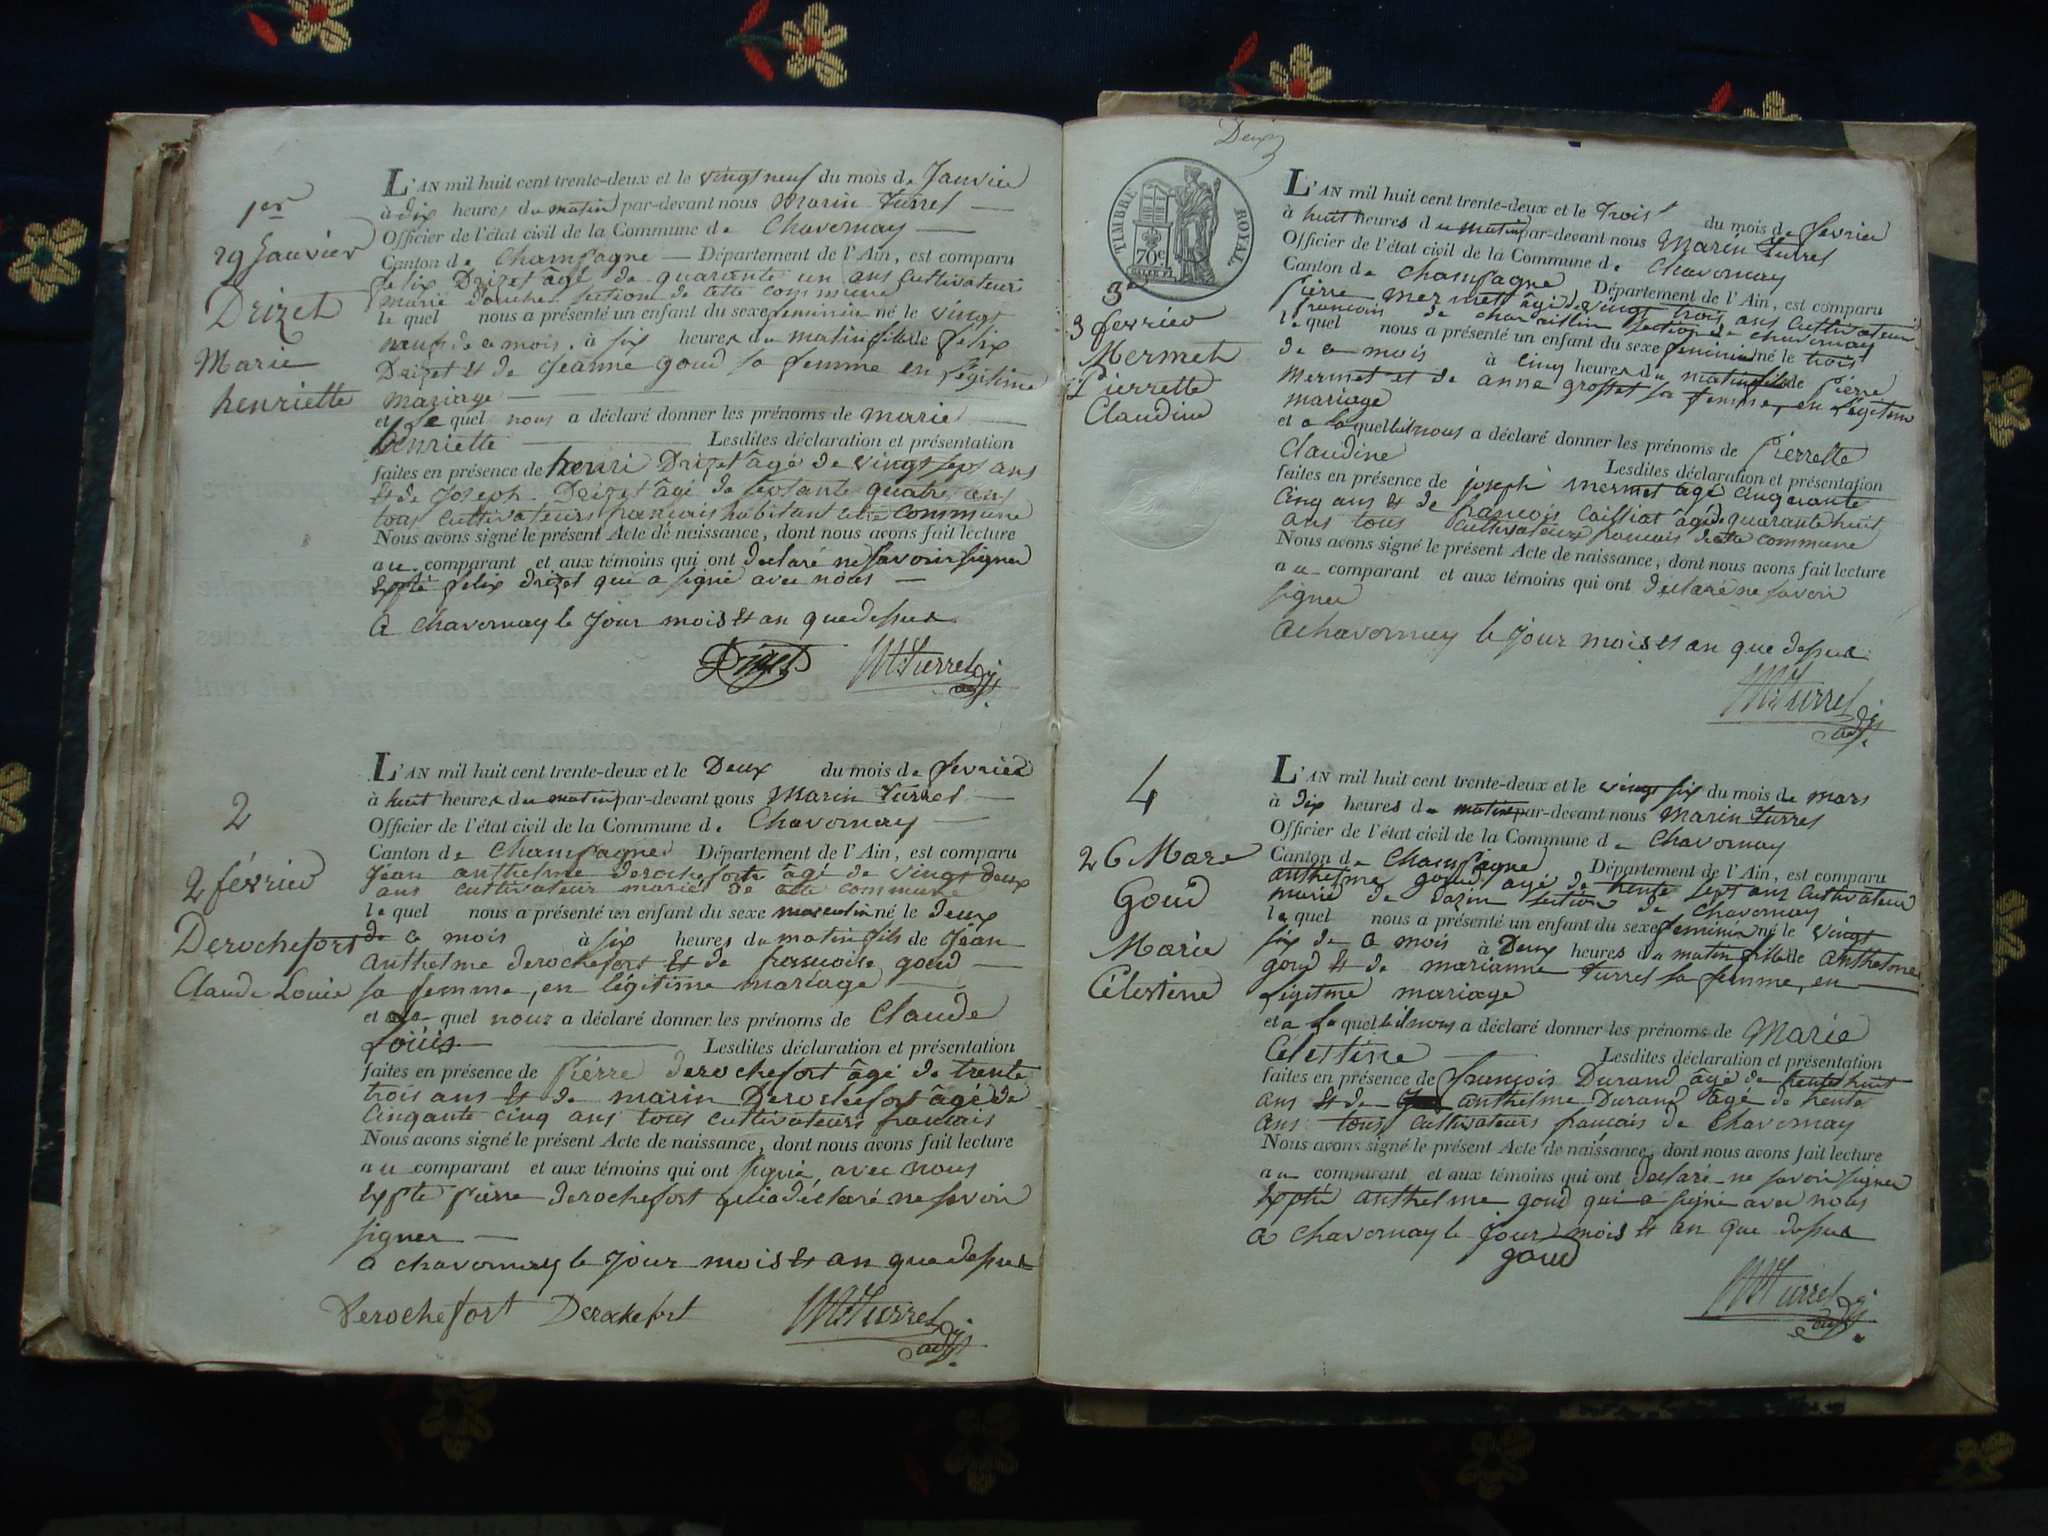 1er
29 Janvier
Drizet
Marie
henriette
L'AN mil huit cent trente-deux et le vingt neuf du mois de Janvier
à dix heures du matin par-devant nous Marin Turrel
Officier de l'état civil de la Commune de Chavornay
Canton de Champagne Département de l'Ain, est comparu
felix Drizet âgé de quarante un ans cultivateur
marie section de cette commune
le quel nous a présenté un enfant du sexe feminin né le vingt
neuf de ce mois à six heures du matin fille de felix
Drizet et de Jeanne goud sa femme en légitime
mariage
et le quel nous a déclaré donner les prénoms de marie
henriette Lesdites déclaration et présentation
faites en présence de henri Drizet âgé de vingt sept ans
et de Joseph Drizet âgé de soixante quatre ans
tous cultivateurs francais habitant cette commune
Nous avons signé le présent Acte de naissance, dont nous avons fait lecture
au comparant et aux témoins qui ont declaré ne savoir signer
expté felix drizet qui a signé avec nous
a chavornay le jour mois et an que dessus
Drizet MTurrel adj.
2
2 février
Derochefort
Claude Louis
L'AN mil huit cent trente-deux et le Deux du mois de fevrier
à huit heures du matin par-devant nous Marin Turrel
Officier de l'état civil de la Commune de Chavornay
Canton de Champagne Département de l'Ain, est comparu
Jean anthelme derochefort âgé de vingt deux
ans cultivateur marié de cette commune
le quel nous a présenté un enfant du sexe masculin né le deux
de ce mois à six heures du matin fils de Jean
anthelme derochefort et de francoise goud
sa femme, en légitime mariage
et quel nous a déclaré donner les prénoms de Claude
Louis Lesdites déclaration et présentation
faites en présence de Pierre derochefort âgé de trente
trois ans et de marin Derochefort âgé de
Cinqante cinq ans tous cultivateurs francais
Nous avons signé le présent Acte de naissance, dont nous avons fait lecture
au comparant et aux témoins qui ont signé avec nous
expté pierre derochefort qui a déclaré ne savoir
signer
a chavornay le jour mois et an que dessus
Derochefort Derochefort MTurrel adj.
Deux
TIMBRE ROYAL
70c
3e
3 fevrier
Mermet
Pierrette
Claudine
L'AN mil huit cent trente-deux et le Trois du mois de fevrier
à huit heures du matin par-devant nous Marin Turrel
Officier de l'état civil de la Commune de Chavornay
Canton de Champagne Département de l'Ain, est comparu
Pierre mermet âgé de vingt trois ans cultivateur
francais de charaillin section de chavornay
le quel nous a présenté un enfant du sexe feminin né le trois
de ce mois à cinq heures du matin fille de Pierre
Mermet et de anne grosset sa femme, en légitime
mariage
et a laquelle il nous a déclaré donner les prénoms de Pierrette
Claudine Lesdites déclaration et présentation
faites en présence de joseph mermet agé cinquante
cinq ans et de francois Cailliat âgé de quarante huit
ans tous cultivateurs francais de cette commune
Nous avons signé le présent Acte de naissance, dont nous avons fait lecture
au comparant et aux témoins qui ont declaré ne savoir
signer
a chavornay le jour mois et an que dessus
MTurrel adj.
4
26 Mars
Goud
Marie
Célestine
L'AN mil huit cent trente-deux et le vingt six du mois de mars
à dix heures du matin par-devant nous Marin Turrel
Officier de l'état civil de la Commune de Chavornay
Canton de Champagne Département de l'Ain, est comparu
anthelme goud âgé de trente sept ans cultivateur
marié de dazin section de Chavornay
le quel nous a présenté un enfant du sexe feminin né le vingt
six de ce mois à Deux heures du matin fille de anthelme
goud et de marianne Turrel sa femme, en
légitime mariage
et a laquelle il nous a déclaré donner les prénoms de Marie
Célestine Lesdites déclaration et présentation
faites en présence de françois Durand âgé de trente huit
ans et de anthelme Durand âgé de trente
ans tous cultivateurs français de Chavornay
Nous avons signé le présent Acte de naissance, dont nous avons fait lecture
au comparant et aux témoins qui ont declaré ne savoir signer
expté anthelme goud qui a signé avec nous
a chavornay le jour mois et an que dessus
goud
MTurrel adj.